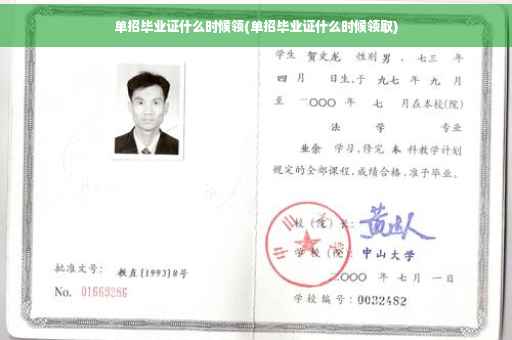 单招毕业证什么时候领(单招毕业证什么时候领取)
学生 贺文龙 性别 男，七三 年
四 月 日生，于 九七 年 九 月
至 二〇〇〇 年 七 月在本校(院)
法 学 专业
业余 学习，修完 本 科教学计划
规定的全部课程，成绩合格，准予毕业。
校（院）长：
学校（院） 中山大学
批准文号： 教直[1993]8号
二〇〇〇 年 七 月 一 日
No. 01669286
学校编号：0032482